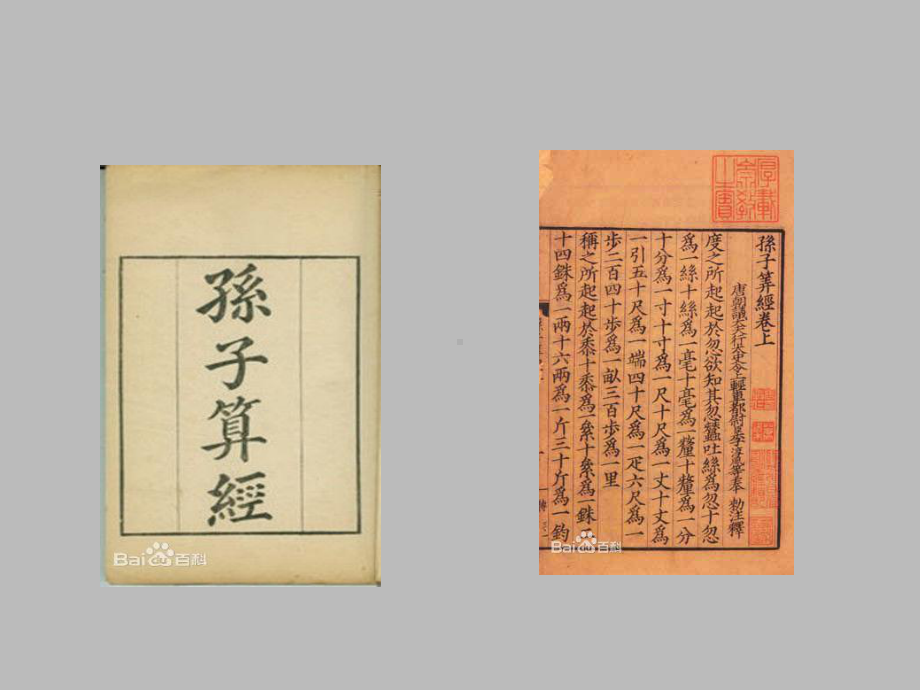 孫子算經
Bai百科
孫子筭經卷上
唐朝議大夫行太史令上輕車都尉臣李淳風等奉 勅注釋
度之所起起於忽欲知其忽蠶吐絲為忽十忽
爲一絲十絲爲一毫十毫爲一釐十釐爲一分
十分爲一寸十寸爲一尺十尺爲一丈十丈爲
一引五十尺爲一端四十尺爲一疋六尺爲一
步二百四十步爲一畝三百步爲一里
稱之所起起於黍十黍爲一絫十絫爲一銖二
十四銖爲一兩十六兩爲一斤三十斤爲一鈞
Bai百科